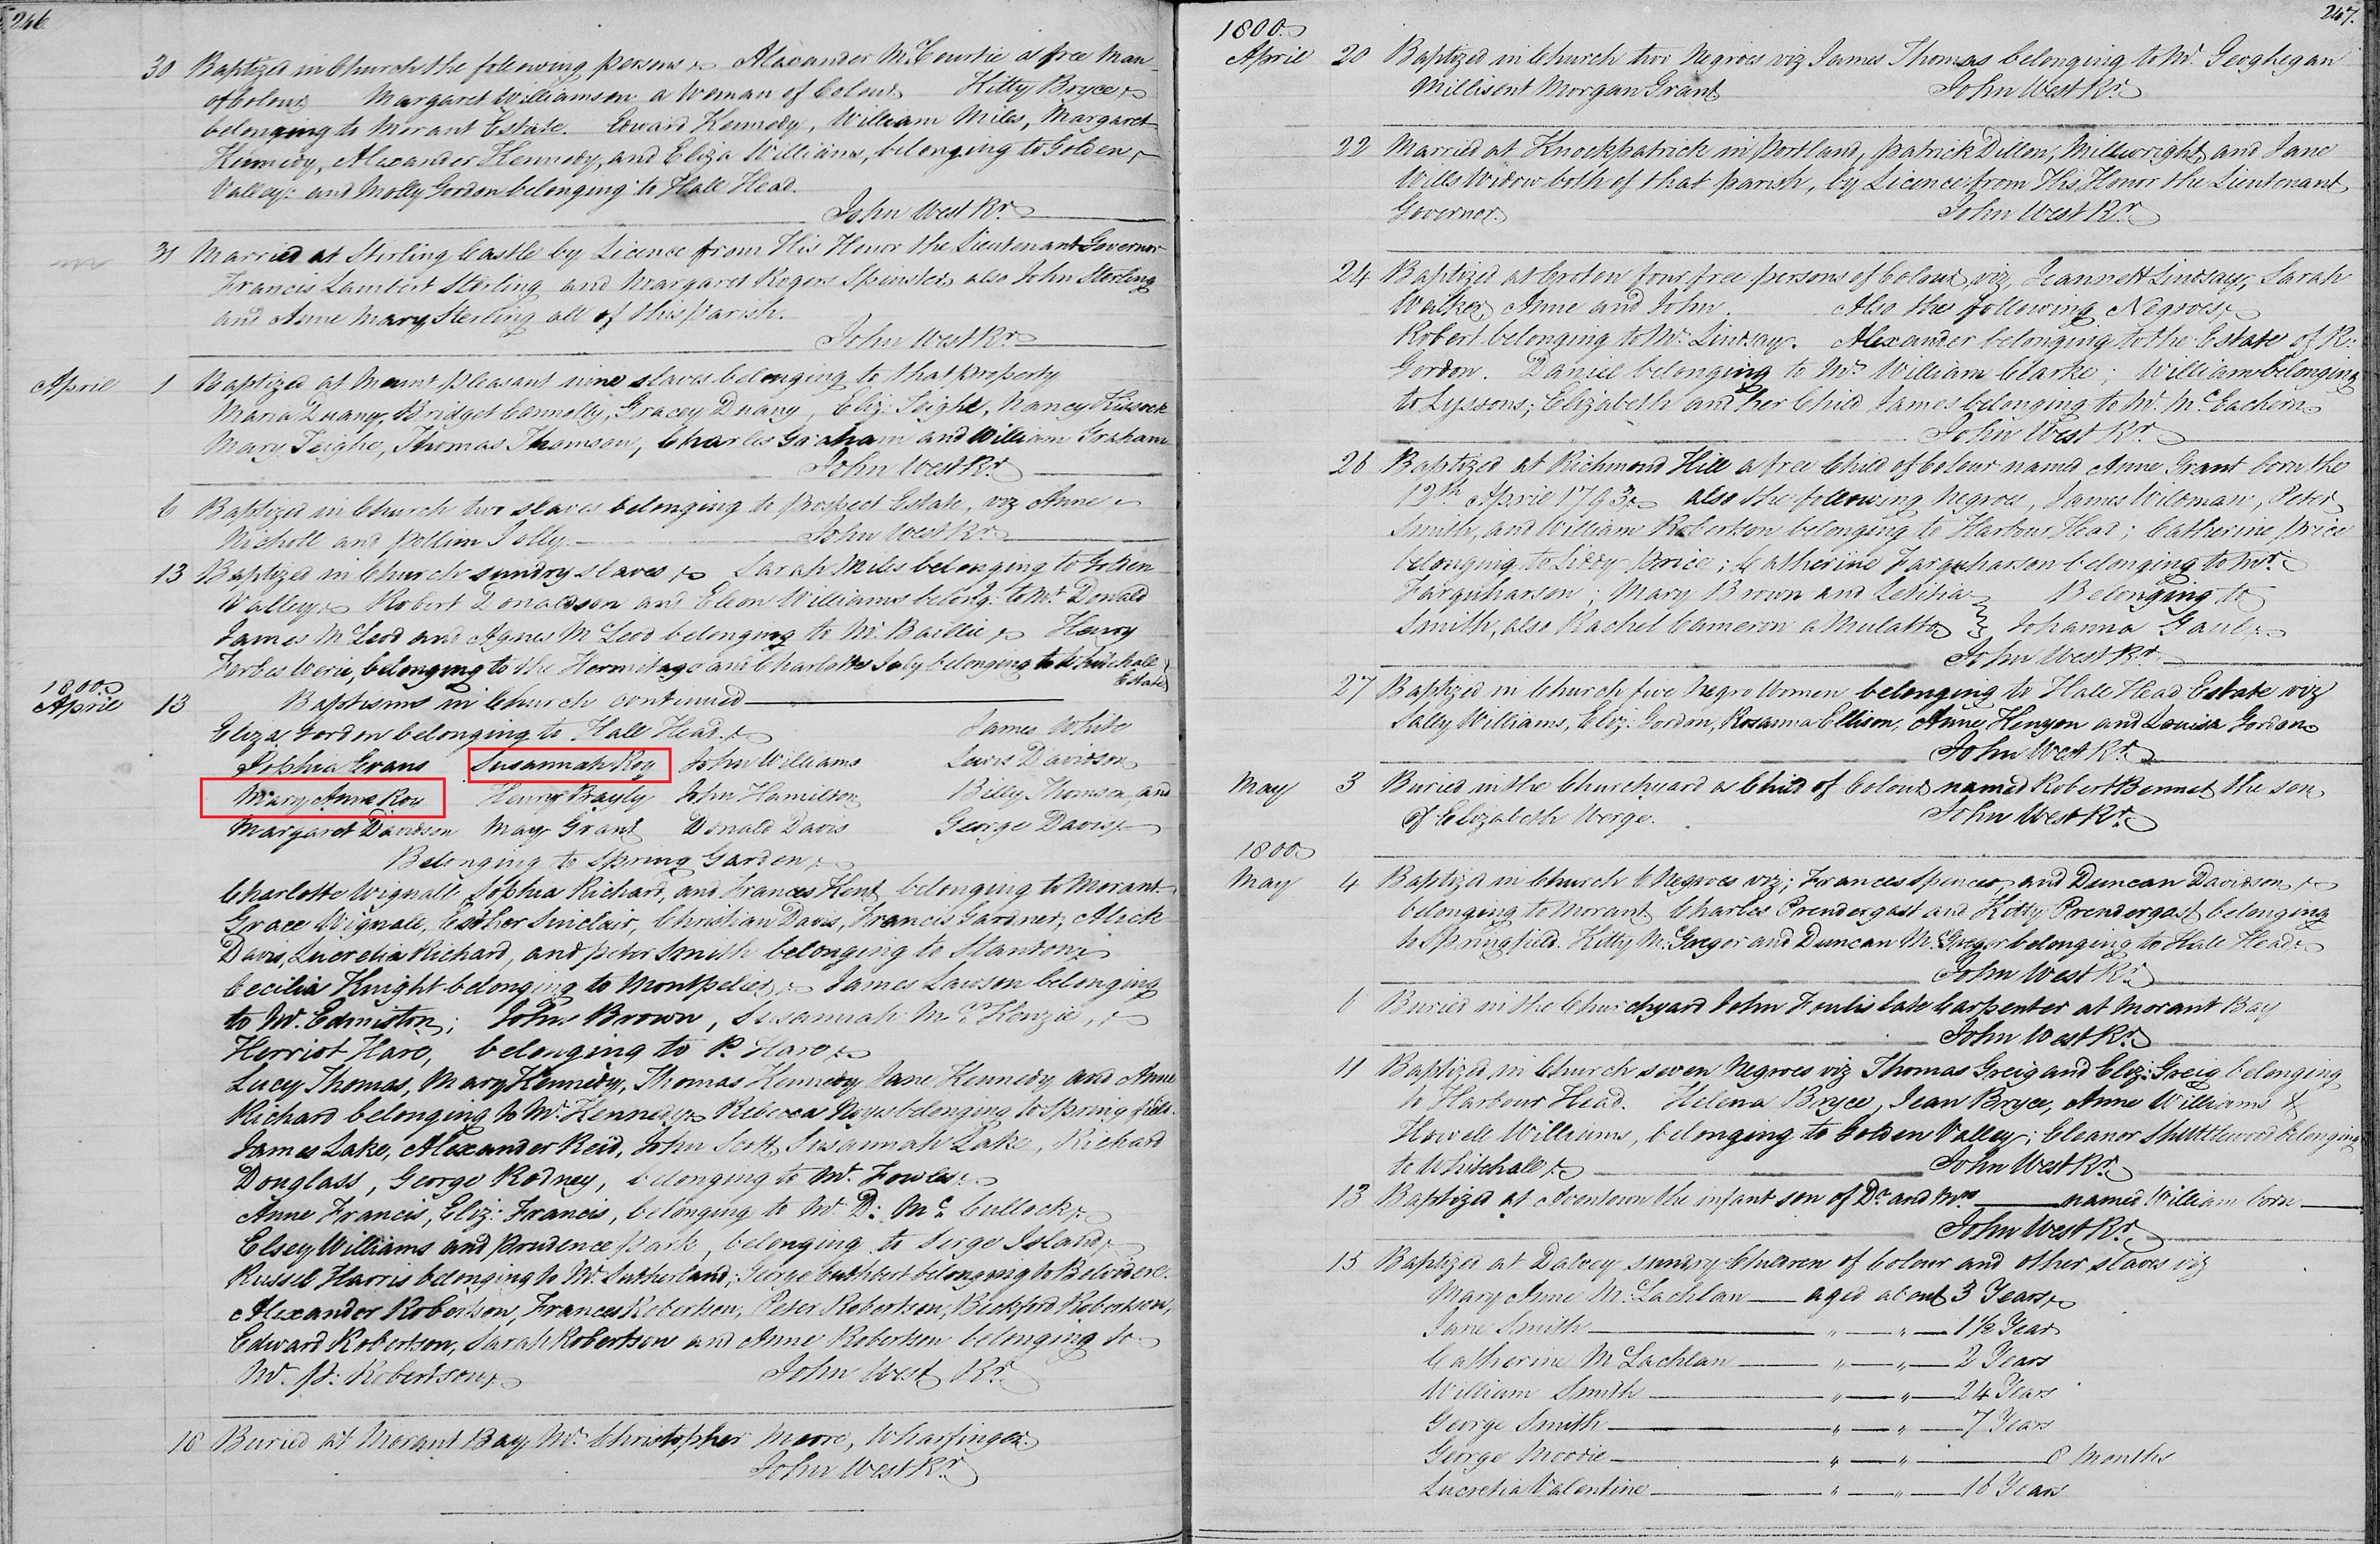 246
30 Baptized in Church the following persons Alexander McCourtie a free Man
of Colour Margaret Williamson a Woman of Colour Kitty Bryce
belonging to Morant Estate. Edward Kennedy, William Miles, Margaret
Kennedy, Alexander Kennedy, and Eliza Williams, belonging to Golden
Valley: and Molly Gordon belonging to Hall Head.
John West Rr.
31 Married at Stirling Castle by Licence from His Honor the Lieutenant Governor
Francis Lambert Sterling and Margaret Rogers Spinster, also John Sterling
and Anne Mary Sterling all of this parish.
John West Rr.
April 1 Baptized at Mount pleasant nine slaves belonging to that property
Maria Duany, Bridget Connolly, Gracey Duany, Eliz: Teighe, Nancy
Mary Teighe, Thomas Thomson, Charles Graham and William Graham
John West Rr.
6 Baptized in Church two slaves belonging to prospect Estate, viz Anne
Nicholl and Jolly. John West Rr.
13 Baptized in Church sundry slaves Sarah Miles belonging to Golden
Valley. Robert Donaldson and Eleon Williams belong: to Mr. Donald
James McLeod and Agnes McLeod belonging to Mr. Baillie Henry
Forbes were, belonging to the Hermitage and Charlotte July belonging to Whitehall
Estate
1800.
April 13 Baptisms in Church continued
Eliza Gordon belonging to Hall Head. James White
Sophia Evans Susannah Roy John Williams Lewis Davidson
Mary Anne Roy Henry Bayly John Hamilton Billy Thomson, and
Margaret Davidson May Grant Donald Davis George Davis
Belonging to Spring Garden
Charlotte Wignall, Sophia Richard, and Frances Kent belonging to Morant
Grace Wignall, Esther Sinclair, Christian Davis, Francis Gardner, Alick
Davis, Lucretia Richard, and peter Smith belonging to Stanton
Cecilia Knight belonging to Montpelier James Lawson belonging
to Mr. Edmiston; John Brown, Susannah McKenzie,
Herriot Haro, belonging to P. Haro
Lucy Thomas, Mary Kennedy, Thomas Kennedy, Jane Kennedy and Anne
Richard belonging to Mr. Kennedy. Rebecca belonging to Spring field.
James Lake, Alexander Reid, John Scott, Susannah Lake, Richard
Douglass, George Rodney, belonging to Mr. Fowles
Anne Francis, Eliz: Francis, belonging to Mr. D: McCullock
Elsey Williams and prudence park, belonging to Serge Island
Russell Harris belonging to Mr. Sutherland; George Cuthbert belonging to Belvidere.
Alexander Robertson, Frances Robertson, Peter Robertson, Beckford Robertson,
Edward Robertson, Sarah Robertson and Anne Robertson belonging to
Mr. P: Robertson John West Rr.
18 Buried at Morant Bay Mr. Christopher Moore, Wharfinger.
John West Rr.
247.
1800.
April 20 Baptized in Church two Negroes viz James Thomas belonging to Mr. Geoghegan
Millisent Morgan Grant John West Rr.
22 Married at Knockpatrick in Portland, patrick Dillon, Millwright, and Jane
Wills Widow both of that parish, by Licence from His Honor the Lieutenant
Governor. John West Rr.
24 Baptized at Croton four free persons of Colour, viz, Jeannett Lindsay, Sarah
Walker, Anne and John. Also the following Negroes
Robert belonging to Mr. Lindsay. Alexander belonging to the Estate of R:
Gordon. Daniel belonging to Mr. William Clarke; William belonging
to Lyssons; Elizabeth and her Child James belonging to Mr. McEachern
John West Rr.
26 Baptized at Richmond Hill a free Child of Colour named Anne Grant born the
12th April 1793. also the following Negroes, James Wildman, Peter
Smith, and William Robertson belonging to Harbour Head; Catherine Price
belonging to Liddy Price; Catherine Farquharson belonging to Mr.
Farquharson; Mary Brown and Letitia Belonging to
Smith, also Rachel Cameron a Mulatto Johanna Gaul
John West Rr.
27 Baptized in Church five Negro Women belonging to Hall Head Estate viz
Sally Williams, Eliz: Gordon, Rosanna Ellison, Anne Kenyon and Louisa Gordon
John West Rr.
May 3 Buried in the Churchyard a Child of Colour named Robert Bennet the son
of Elizabeth Verge. John West Rr.
1800
May 4 Baptized in Church 6 Negroes viz; Frances Spencer, and Duncan Davidson
belonging to Morant, Charles Prendergast and Kitty Prendergast belonging
to Springfield. Kitty McGregor and Duncan McGregor belonging to Hall Head
John West Rr.
6 Buried in the Churchyard John Foulis late Carpenter at Morant Bay
John West Rr.
11 Baptized in Church seven Negroes viz Thomas Greig and Eliz: Greig belonging
to Harbour Head. Helena Bryce, Jean Bryce, Anne Williams &
Howell Williams, belonging to Golden Valley; Eleanor Shuttlewood belonging
to Whitehall John West Rr.
13 Baptized at the infant son of Dr. and Mrs. named William born
John West Rr.
15 Baptized at Dalvey sundry Children of Colour and other slaves viz
Mary Anne McLachlan aged about 3 Years
Jane Smith " " 1½ Year
Catherine McLachlan " " 2 Years
William Smith " " 24 Years
George Smith " " 7 Years
George Moodie " " 8 Months
Lucretia Valentine " " 18 Years